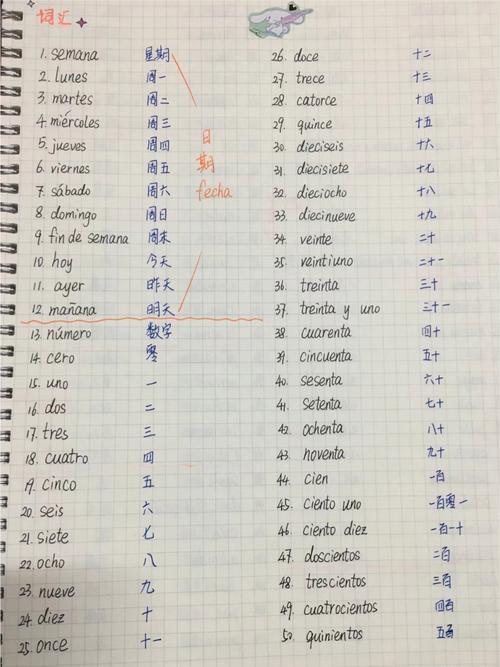 词汇
1. semana 星期
2. lunes 周一
3. martes 周二
4. miércoles 周三
5. jueves 周四
6. viernes 周五
7. sábado 周六
8. domingo 周日
9. fin de semana 周末
10. hoy 今天
11. ayer 昨天
12. mañana 明天
日期
fecha
13. número 数字
14. cero 零
15. uno 一
16. dos 二
17. tres 三
18. cuatro 四
19. cinco 五
20. seis 六
21. siete 七
22. ocho 八
23. nueve 九
24. diez 十
25. once 十一
26. doce 十二
27. trece 十三
28. catorce 十四
29. quince 十五
30. dieciseis 十六
31. diecisiete 十七
32. dieciocho 十八
33. diecinueve 十九
34. veinte 二十
35. veintiuno 二十一
36. treinta 三十
37. treinta y uno 三十一
38. cuarenta 四十
39. cincuenta 五十
40. sesenta 六十
41. setenta 七十
42. ochenta 八十
43. noventa 九十
44. cien 一百
45. ciento uno 一百零一
46. ciento diez 一百一十
47. doscientos 二百
48. trescientos 三百
49. cuatrocientos 四百
50. quinientos 五百